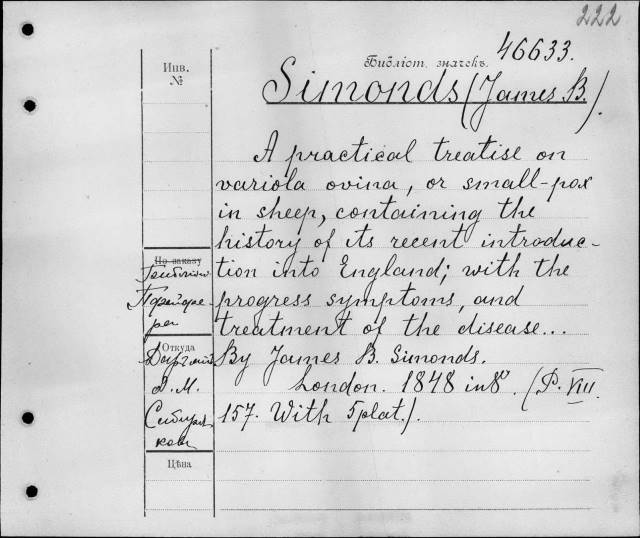 222
46633.
Библіот. значекъ.
Инв.
№
Simonds (James B.).
A practical treatise on
variola ovina, or small-pox
in sheep, containing the
history of its recent introduc-
tion into England; with the
progress symptoms, and
treatment of the disease...
By James B. Simonds.
London. 1848 in 8º. (P. VIII.
157. With 5 plat.).
По заказу
Откуда
В. М.
Сибиряковъ
Цѣна